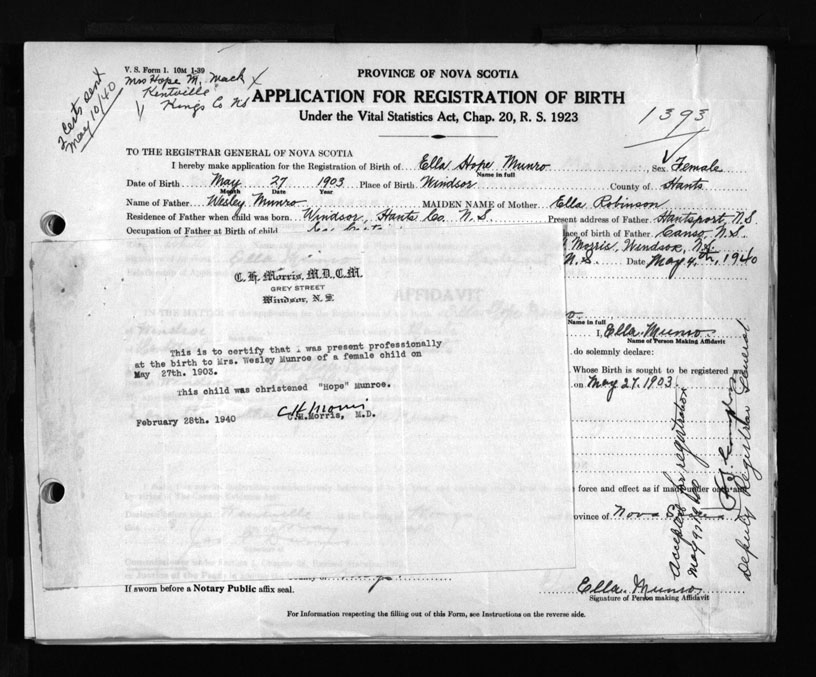 V. S. Form 1. 10M 1-39
Mrs Hope M. Mack
Kentville
Kings Co NS
2 Certs sent
May 10/40
PROVINCE OF NOVA SCOTIA
APPLICATION FOR REGISTRATION OF BIRTH
Under the Vital Statistics Act, Chap. 20, R. S. 1923
1393
TO THE REGISTRAR GENERAL OF NOVA SCOTIA
I hereby make application for the Registration of Birth of Ella Hope Munro Sex Female
Name in full
Date of Birth May 27 1903 Place of Birth Windsor County of Hants
Month Date Year
Name of Father Wesley Munro MAIDEN NAME of Mother Ella Robinson
Residence of Father when child was born. Windsor, Hants Co. N.S. Present address of Father Hantsport, N.S.
Occupation of Father at Birth of child place of birth of Father Canso, N.S.
Morris, Windsor, N.S.
N.S. Date May 4th, 1940
C. H. Morris, M.D., C.M.
GREY STREET
Windsor, N. S.
AFFIDAVIT
Name in full
I, Ella Munro
Name of Person Making Affidavit
do solemnly declare:
Whose Birth is sought to be registered was
on May 27, 1903.
This is to certify that I was present professionally
at the birth to Mrs. Wesley Munroe of a female child on
May 27th. 1903.
This child was christened "Hope" Munroe.
C H Morris
February 28th. 1940 C.H.Morris, M.D.
force and effect as if made under oath and
ovince of Nova Scotia
Accepted for registration
May 9, 1940
Deputy Registrar General
If sworn before a Notary Public affix seal.
Ella Munro
Signature of Person making Affidavit
For Information respecting the filling out of this Form, see Instructions on the reverse side.